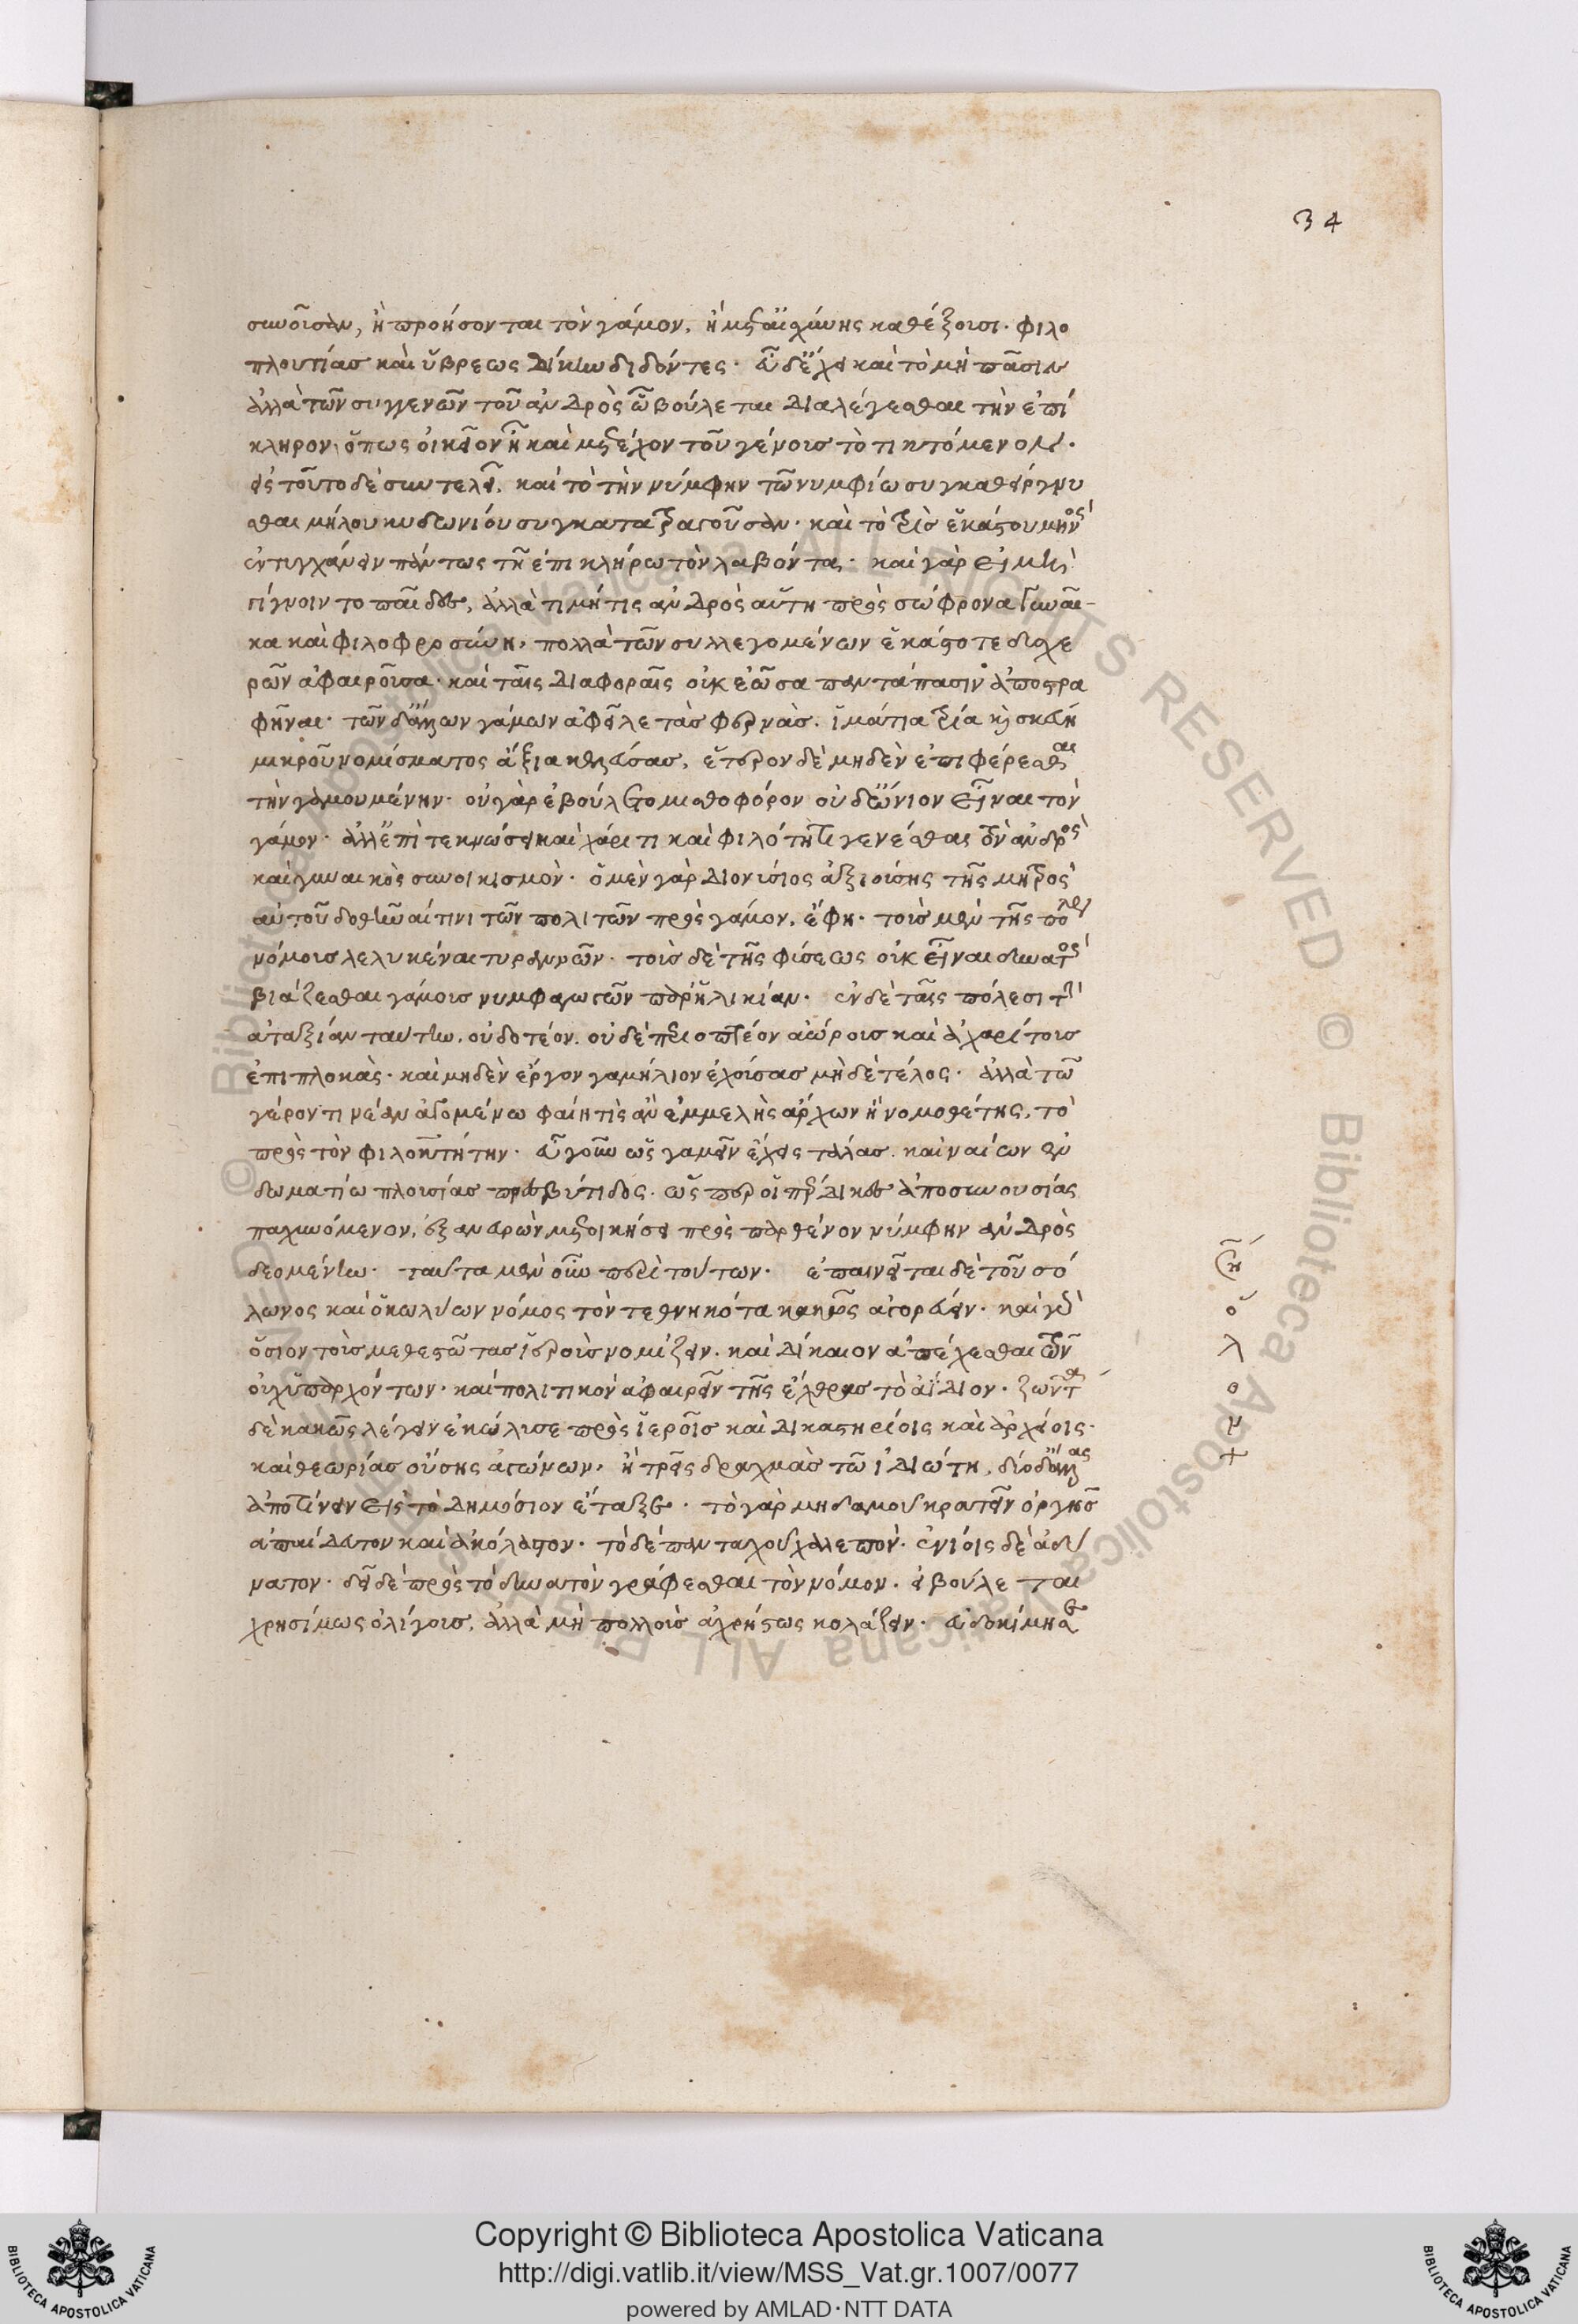 34
συνοῦσαν, ἢ προήσονται τὸν γάμον, ἢ μετ' αἰσχύνης καθέξουσι· φιλο
πλουτίας καὶ ὕβρεως δίκην διδόντες· εὖ δ' ἔχει καὶ τὸ μὴ πᾶσιν
ἀλλὰ τῶν συγγενῶν τοῦ ἀνδρὸς ᾧ βούλεται διαλέγεσθαι τὴν ἐπί
κληρον, ὅπως οἰκεῖον ᾖ καὶ μετέχον τοῦ γένους τὸ τικτόμενον·
εἰς τοῦτο δὲ συντελεῖ, καὶ τὸ τὴν νύμφην τῶ νυμφίω συγκαθείργνυ
σθαι μήλου κυδωνίου συγκατατραγοῦσαν· καὶ τὸ τρὶς ἑκάστου μηνὸς
ἐντυγχάνειν πάντως τῆ ἐπικλήρω τὸν λαβόντα· καὶ γὰρ εἰ μὴ
γίγνοιντο παῖδες, ἀλλὰ τιμή τις ἀνδρὸς αὕτη πρὸς σώφρονα γυναῖ-
κα καὶ φιλοφροσύνη, πολλὰ τῶν συλλεγομένων ἑκάστοτε δυσχε
ρῶν ἀφαιροῦσα· καὶ ταῖς διαφοραῖς οὐκ ἐῶσα παντάπασιν ἀποστρα
φῆναι· τῶν δ' ἄλλων γάμων ἀφεῖλε τὰς φερνάς· ἱμάτια τρία καὶ σκεύη
μικροῦ νομίσματος ἄξια κελεύσας, ἕτερον δὲ μηδὲν ἐπιφέρεσθαι
τὴν γαμουμένην· οὐ γὰρ ἐβούλετο μισθοφόρον οὐδ' ὤνιον εἶναι τὸν
γάμον· ἀλλ' ἐπὶ τεκνώσει καὶ χάριτι καὶ φιλότητι γενέσθαι τὸν ἀνδρὸς
καὶ γυναικὸς συνοικισμὸν· ὁ μὲν γὰρ Διονύσιος ἀξιούσης τῆς μητρὸς
αὐτοῦ δοθῆναί τινι τῶν πολιτῶν πρὸς γάμον, ἔφη· τοὺς μὲν τῆς πόλεως
νόμους λελυκέναι τυραννῶν· τοὺς δὲ τῆς φύσεως οὐκ εἶναι δυνατὸς
βιάζεσθαι γάμους νυμφαγωγῶν παρ' ἡλικίαν· ἐν δὲ ταῖς πόλεσι τὴν
ἀταξίαν ταύτην, οὐ δοτέον· οὐδὲ περιοπτέον ἀώρους καὶ ἀχαρίτους
ἐπιπλοκὰς· καὶ μηδὲν ἔργον γαμήλιον ἐχούσας μὴδὲ τέλος· ἀλλὰ τῶ
γέροντι νέαν ἀγομένω φαίη τὶς ἂν ἐμμελὴς ἄρχων ἢ νομοθέτης, τὸ
πρὸς τὸν φιλοκτήτην· εὖ γοῦν ὡς γαμεῖν ἔχεις τάλας· καὶ νέαν ἐν
δωματίω πλουσίας πρεσβύτιδος· ὡς περ οἱ πέρδικες ἀπὸ συνουσίας
παχυνόμενον, ἐξανευρὼν μετοικήσει πρὸς παρθένον νύμφην ἀνδρὸς
δεομένην· ταῦτα μὲν οὖν περὶ τούτων· ἐπαινεῖται δὲ τοῦ σό
λωνος καὶ ὁ κωλύων νόμος τὸν τεθνηκότα κακῶς ἀγορεύειν· καὶ γὰρ
ὅσιον τοὺς μεθεστῶτας ἱεροὺς νομίζειν· καὶ δίκαιον ἀπέχεσθαι τῶν
οὐχ ὑπαρχόντων· καὶ πολιτικὸν ἀφαιρεῖν τῆς ἔχθρας τὸ ἀΐδιον· ζῶντα
δὲ κακῶς λέγειν ἐκώλυσε πρὸς ἱεροῖς καὶ δικαστηρίοις καὶ ἀρχείοις·
καὶ θεωρίας οὔσης ἀγώνων, ἢ τρεῖς δραχμὰς τῶ ἰδιώτη, δύο δ' ἄλλας
ἀποτίνειν εἰς τὸ δημόσιον ἔταξε· τὸ γὰρ μηδαμοῦ κρατεῖν ὀργῆς
ἀπαίδευτον καὶ ἀκόλαστον· τὸ δὲ πανταχοῦ χαλεπὸν· ἐνίοις δὲ ἀδύ
νατον· δεῖ δὲ πρὸς τὸ δυνατὸν γράφεσθαι τὸν νόμον· εἰ βούλεται
χρησίμως ὀλίγους, ἀλλὰ μὴ πολλοὺς ἀχρήστως κολάζειν· εὐδοκίμησε
Copyright © Biblioteca Apostolica Vaticana
http://digi.vatlib.it/view/MSS_Vat.gr.1007/0077
powered by AMLAD·NTT DATA
BIBLIOTECA APOSTOLICA VATICANA
BIBLIOTECA APOSTOLICA VATICANA